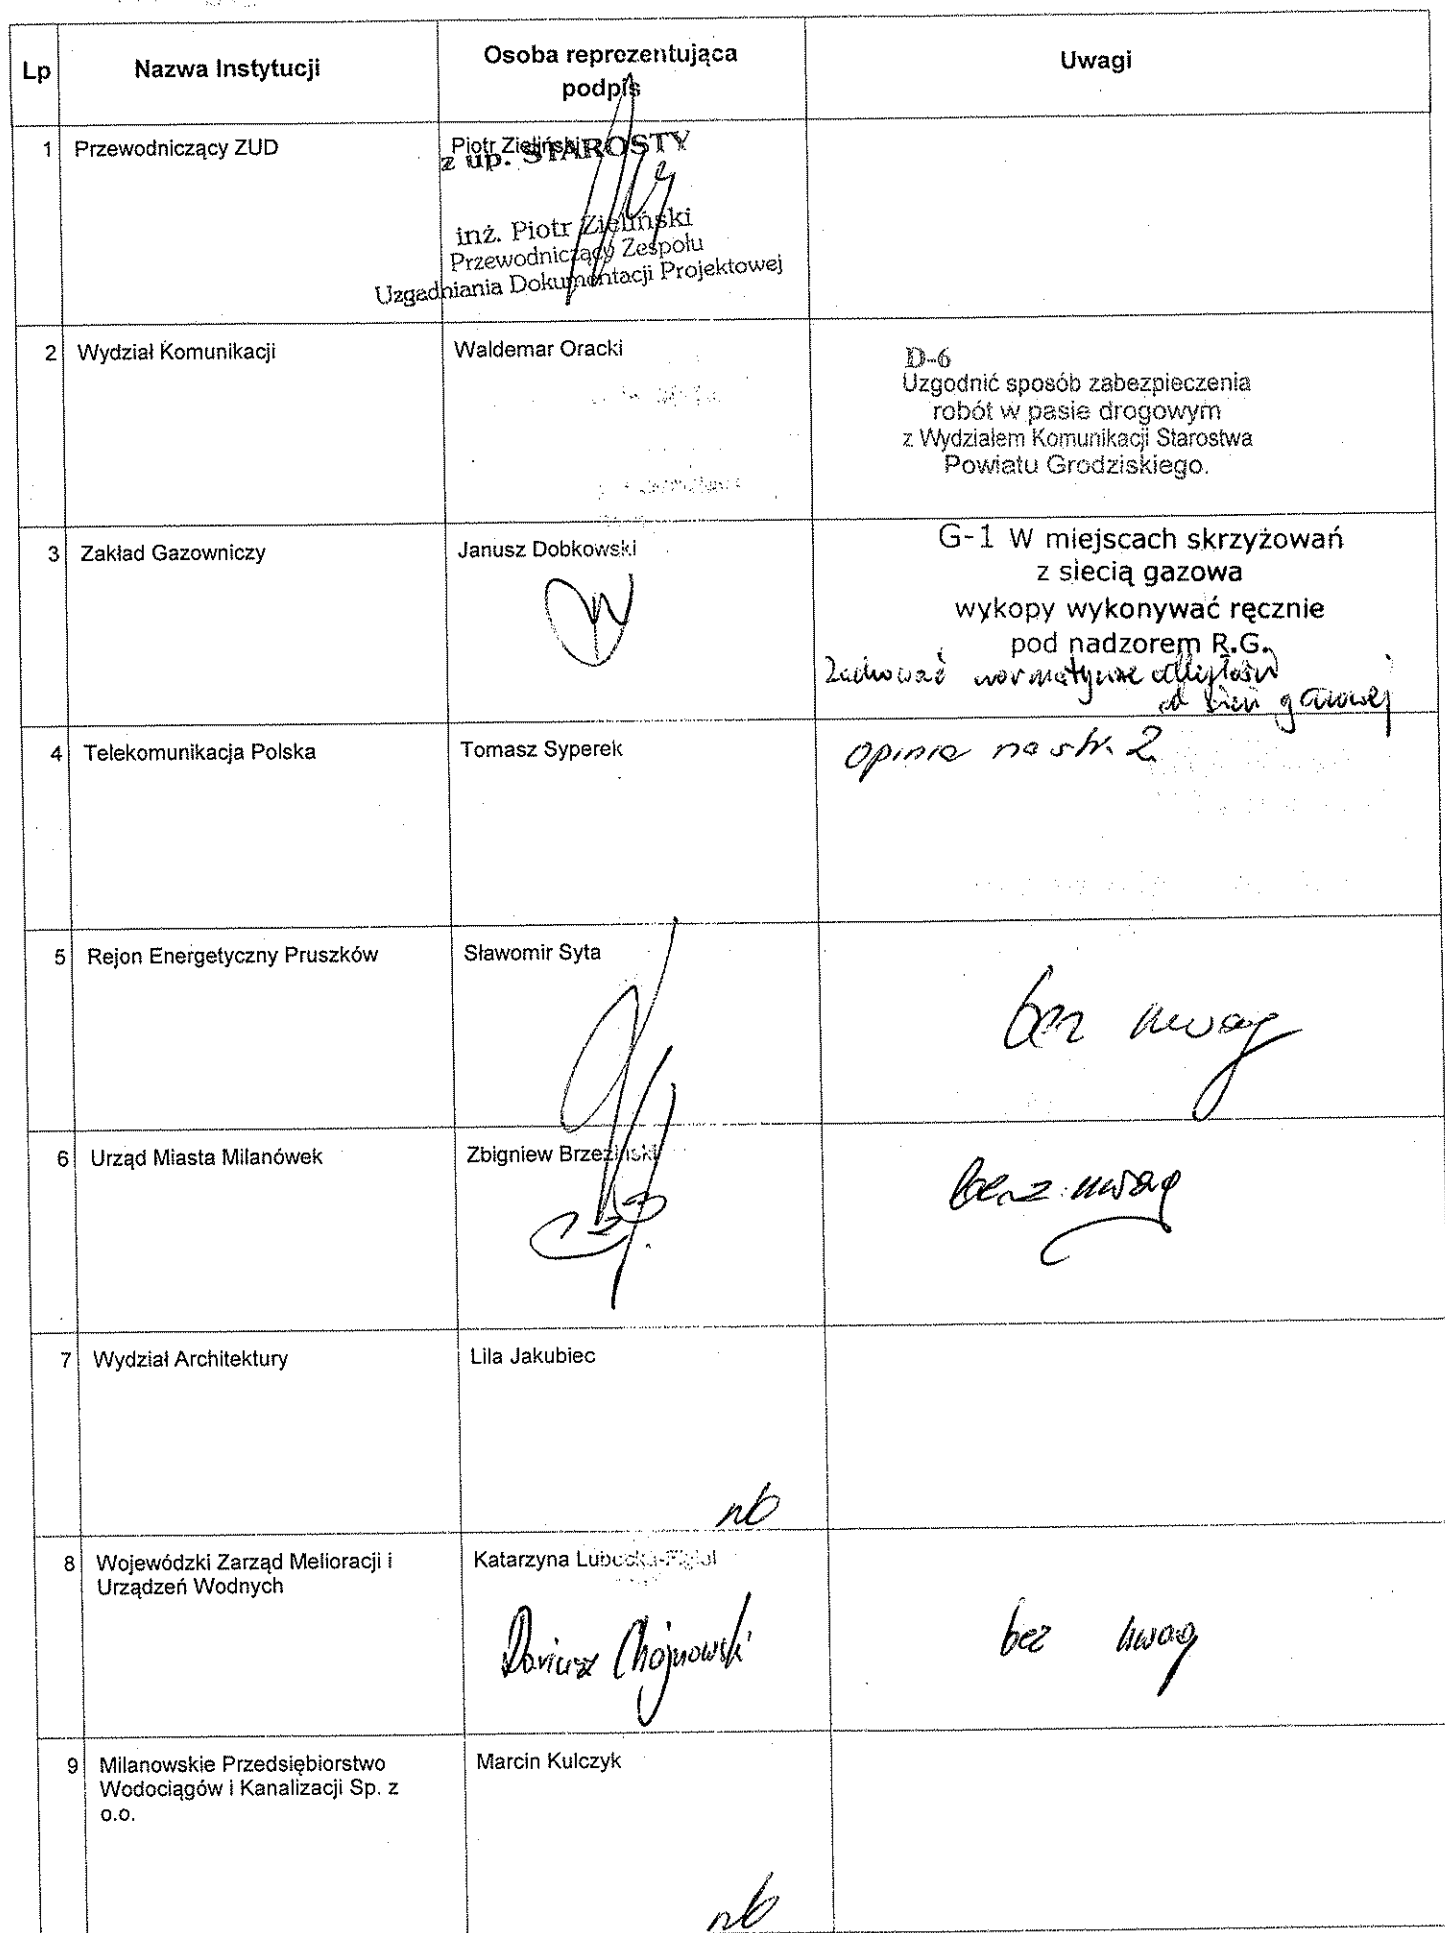 Lp
Nazwa Instytucji
Osoba reprezentująca
podpis
Uwagi
1
Przewodniczący ZUD
Piotr Zieliński
z up. STAROSTY
inż. Piotr Zieliński
Przewodniczący Zespołu
Uzgadniania Dokumentacji Projektowej
2
Wydział Komunikacji
Waldemar Oracki
D-6
Uzgodnić sposób zabezpieczenia
robót w pasie drogowym
z Wydziałem Komunikacji Starostwa
Powiatu Grodziskiego.
3
Zakład Gazowniczy
Janusz Dobkowski
G-1 W miejscach skrzyżowań
z siecią gazowa
wykopy wykonywać ręcznie
pod nadzorem R.G.
Zachować normatywne odległości
od sieci gazowej
4
Telekomunikacja Polska
Tomasz Syperek
opinia na str. 2
5
Rejon Energetyczny Pruszków
Sławomir Syta
bez uwag
6
Urząd Miasta Milanówek
Zbigniew Brzeziński
bez uwag
7
Wydział Architektury
Lila Jakubiec
nb
8
Wojewódzki Zarząd Melioracji i
Urządzeń Wodnych
Katarzyna
Dariusz Chojnowski
bez uwag
9
Milanowskie Przedsiębiorstwo
Wodociągów i Kanalizacji Sp. z
o.o.
Marcin Kulczyk
nb